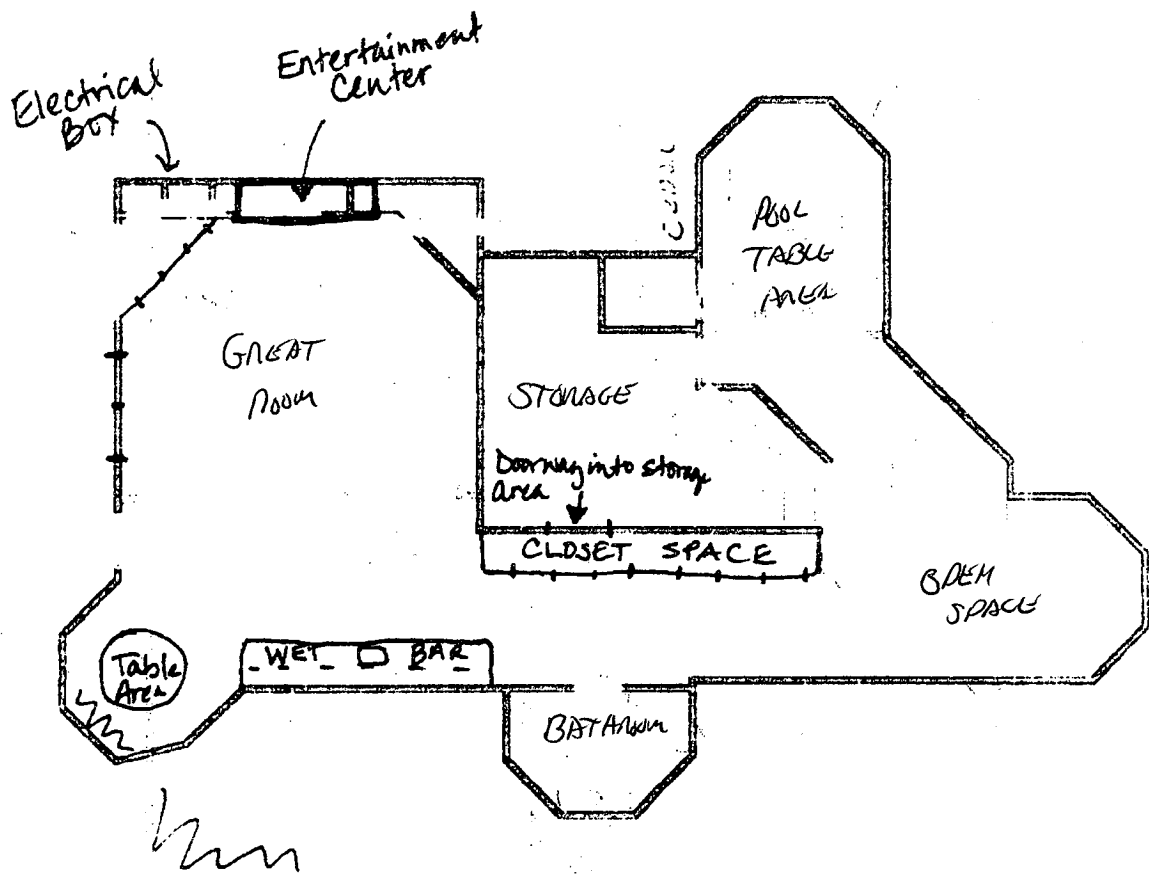 Electrical
Box
Entertainment
Center
POOL
TABLE
AREA
GREAT
ROOM
STORAGE
Doorway into storage
area
CLOSET SPACE
OPEN
SPACE
WET BAR
Table
Area
BATHROOM